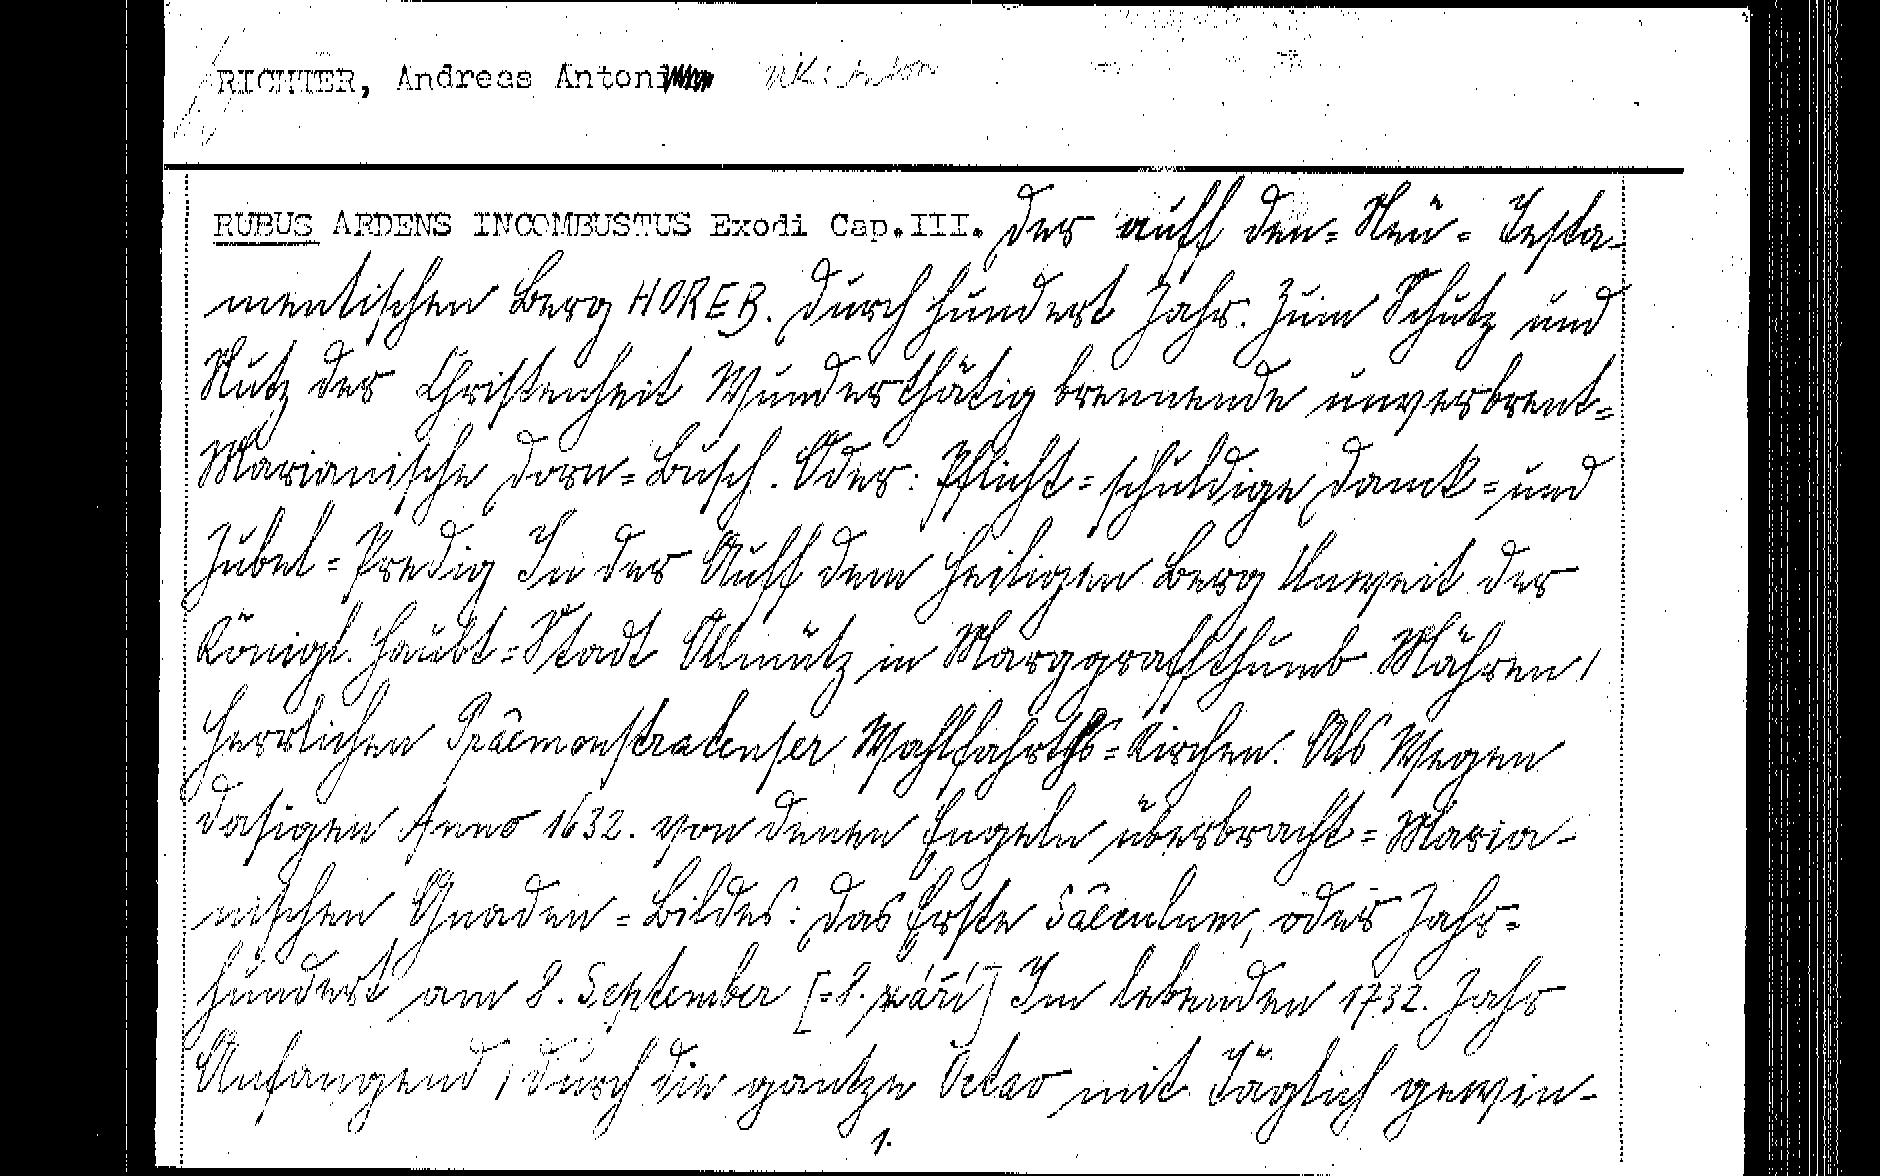 RICHTER, Andreas Anton
RUBUS ARDENS INCOMBUSTUS Exodi Cap.III. Der auff den= Neü= Testa-
mentischen Berg HOREB. Durch Hundert Jahr. Zum Schutz und
Nutz der Christenheit Wunderthätig brennende unverbrent=
Marianische Dorn=Busch. Oder: Pflicht=schuldige Danck=und
Jubel=Predig In der Auff dem Heiligen Berg Unweit der
Königl. Haubt=Stadt Ollmütz in Marggraffthumb Mähren/
Herrlichen Praêmonstratenser Wahlfahrths=Kirchen. Als Wegen
dasigen Anno 1632. von denen Engeln überbracht=Maria-
nischen Gnaden=Bildes: Das Erste Saêculum, oder Jahr=
hundert am 8. September [=8. září] Im lebenden 1732. Jahr
Anfangend/ durch die gantze Octav mit Täglich gewin-
1.